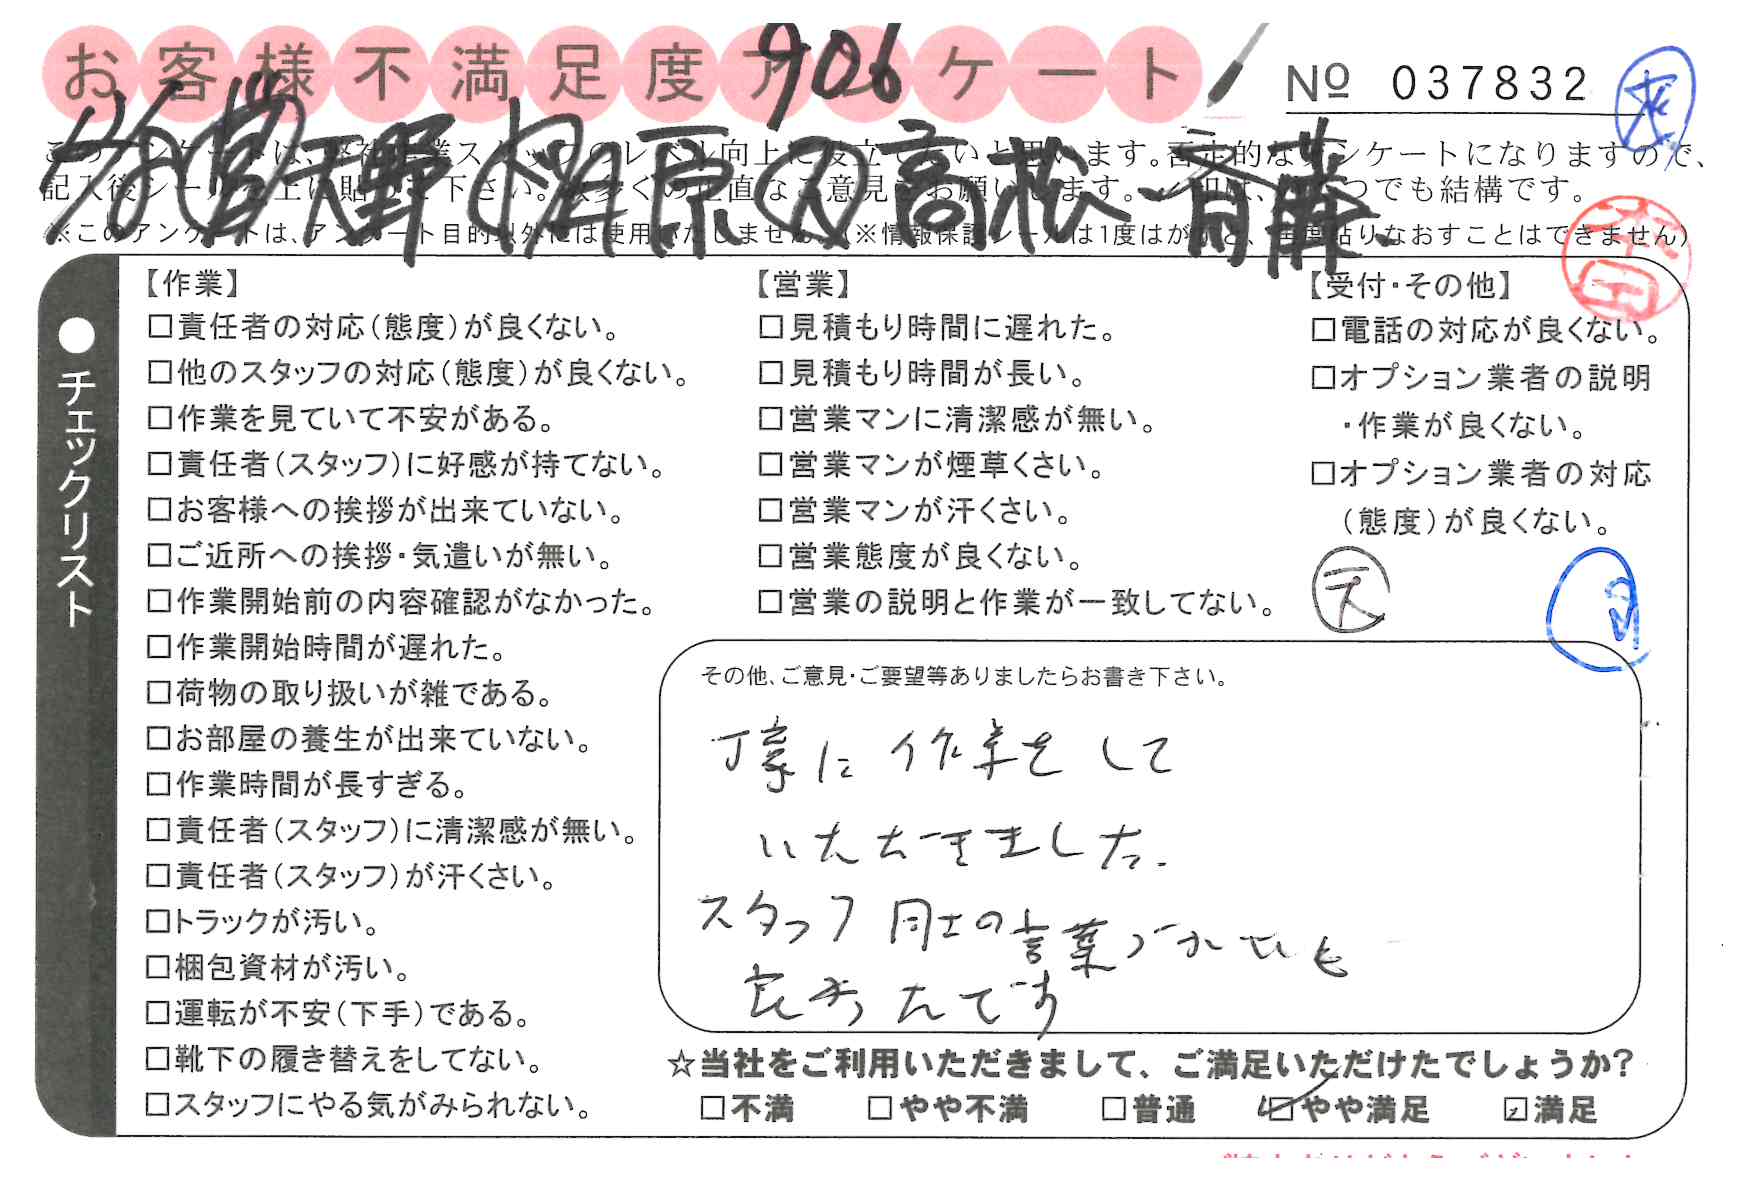 お客様不満足度アンケート
906
№ 037832
このアンケートは、弊社作業スタッフのレベル向上に役立てたいと思います。否定的なアンケートになりますので、
記入後シールを上に貼って下さい。数多くの正直なご意見をお願いします。
天野 相原 高松 斉藤
※このアンケートは、アンケート目的以外には使用いたしません。(※情報保護シールは1度はがすと、再度貼りなおすことはできません)
●チェックリスト
【作業】
□責任者の対応(態度)が良くない。
□他のスタッフの対応(態度)が良くない。
□作業を見ていて不安がある。
□責任者(スタッフ)に好感が持てない。
□お客様への挨拶が出来ていない。
□ご近所への挨拶・気遣いが無い。
□作業開始前の内容確認がなかった。
□作業開始時間が遅れた。
□荷物の取り扱いが雑である。
□お部屋の養生が出来ていない。
□作業時間が長すぎる。
□責任者(スタッフ)に清潔感が無い。
□責任者(スタッフ)が汗くさい。
□トラックが汚い。
□梱包資材が汚い。
□運転が不安(下手)である。
□靴下の履き替えをしてない。
□スタッフにやる気がみられない。
【営業】
□見積もり時間に遅れた。
□見積もり時間が長い。
□営業マンに清潔感が無い。
□営業マンが煙草くさい。
□営業マンが汗くさい。
□営業態度が良くない。
□営業の説明と作業が一致してない。
【受付・その他】
□電話の対応が良くない。
□オプション業者の説明
・作業が良くない。
□オプション業者の対応
(態度)が良くない。
天
その他、ご意見・ご要望等ありましたらお書き下さい。
丁寧に作業をして
いただきました.
スタッフ同士の言葉づかいも
良かったです
☆当社をご利用いただきまして、ご満足いただけたでしょうか?
□不満 □やや不満 □普通 ☑やや満足 ☑満足